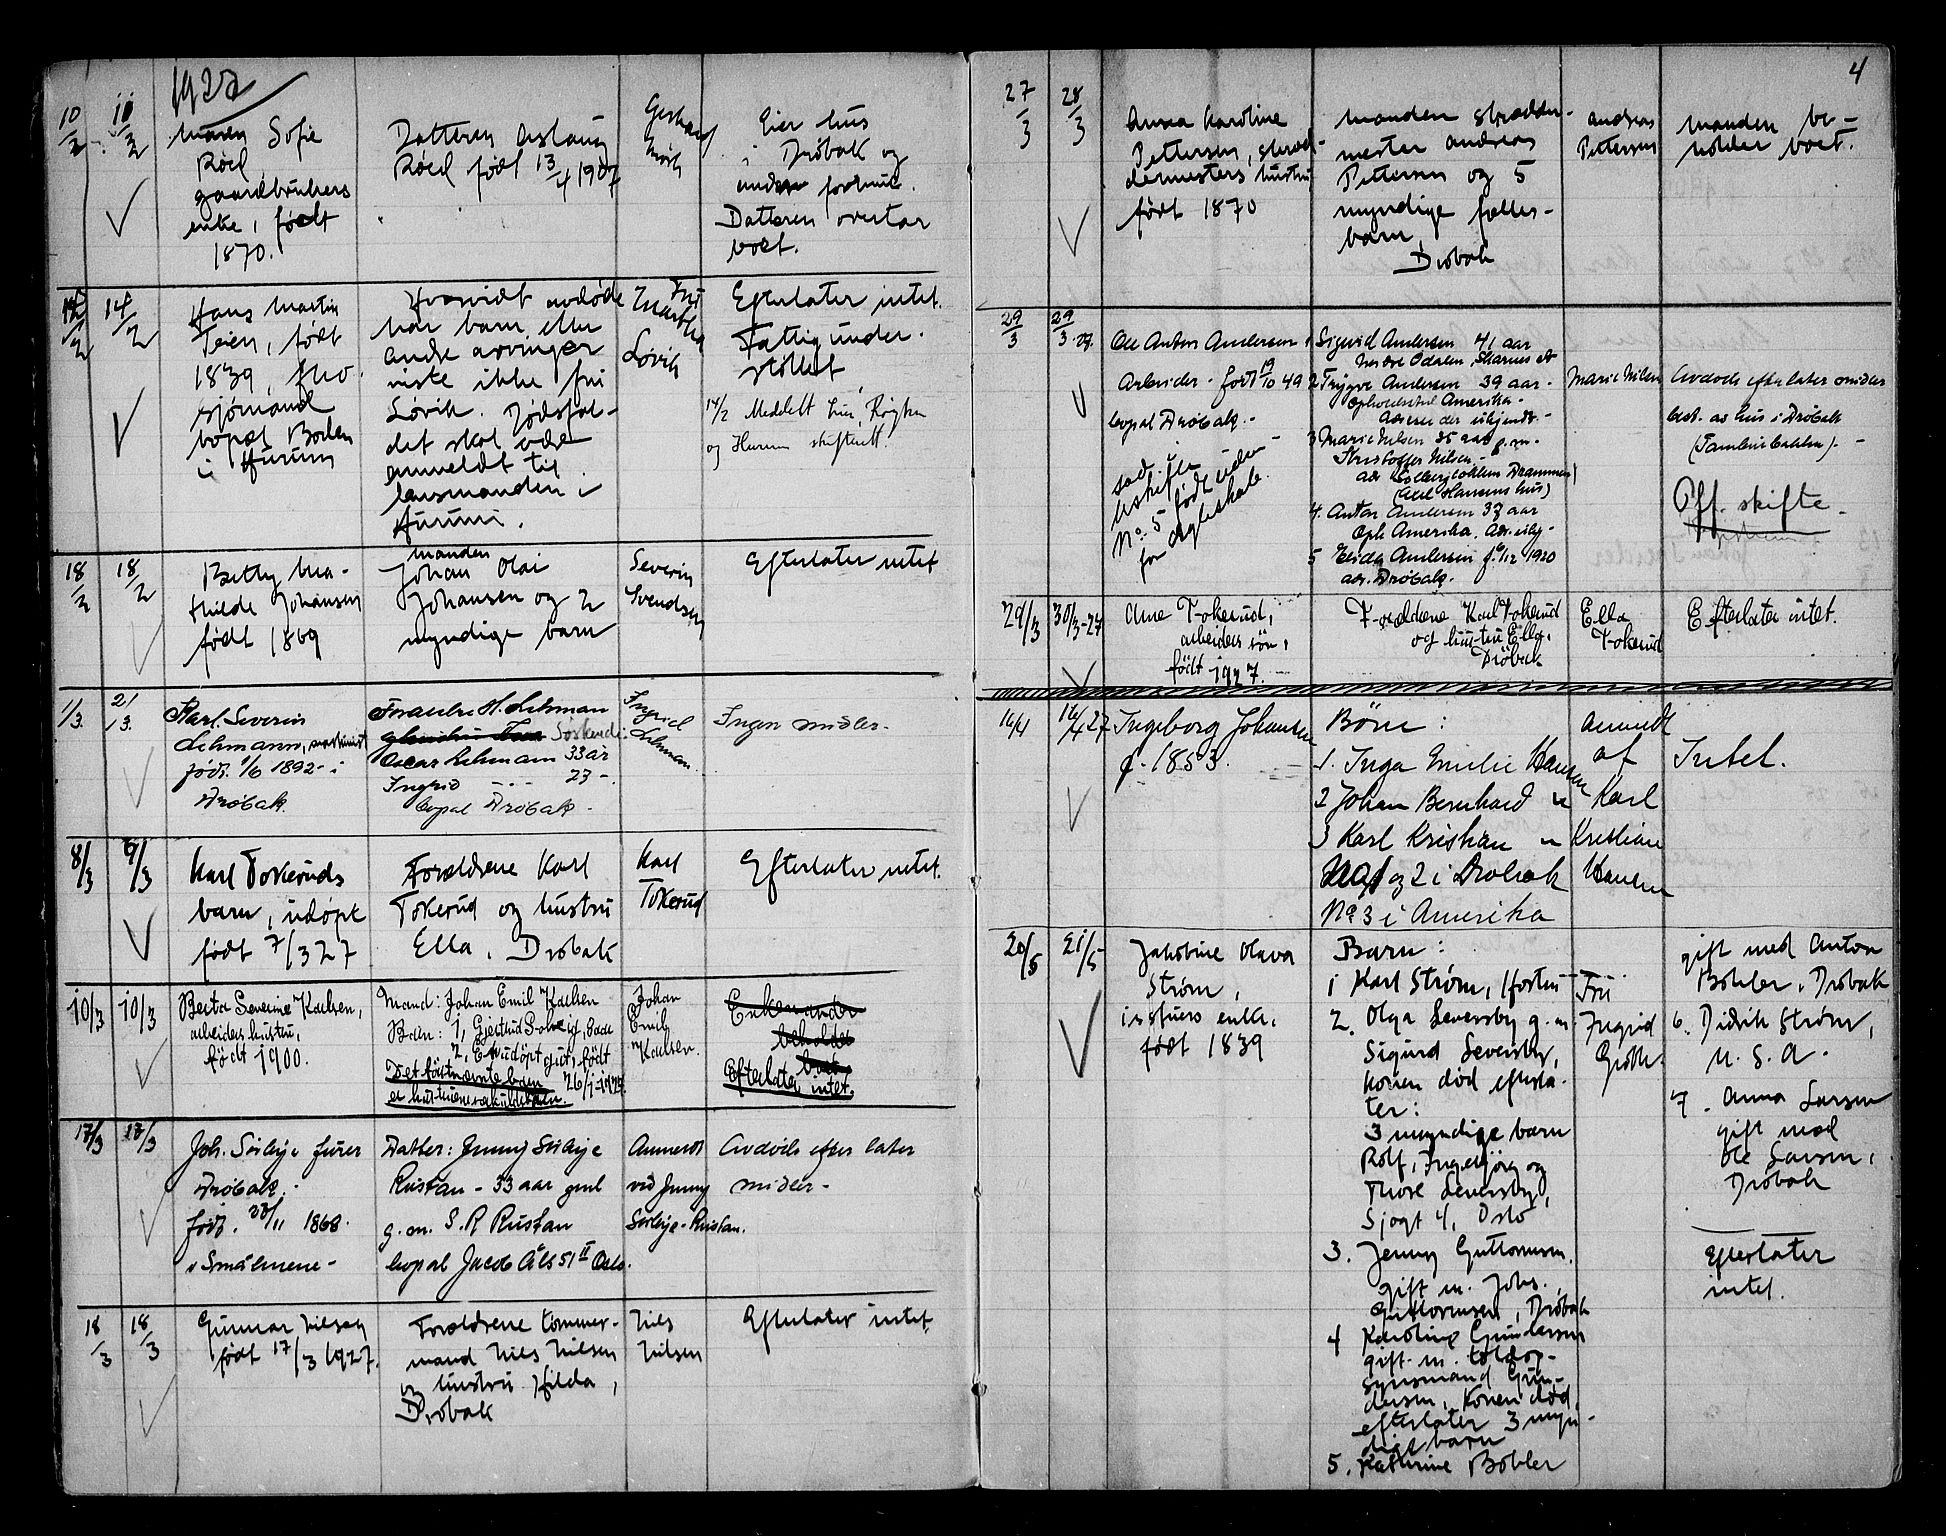 1927
10/2
11/2
Maren Sofie
Røed
gaardbrukers
enke, født
1870.
Datteren Aslaug
Røed født 13/4 1907
Eier hus
i Drøbak og
andre fordruk.
Datteren overtar
boet.
12/2
14/2
Hans Martin
Teien, født
1839, fhv.
sjømand
bopæl Boden
i Hurum
Hvorvidt avdøde
har barn eller
andre arvinger
viste ikke fru
Løvik. Dødsfal-
det skal være
anmeldt til
lensmanden i
Hurum.
Fru
Martha
Løvik
Efterlater intet.
Fattigunder-
støttet
14/2 Meddelt hr. Røyken
og Hurum skifterett.
18/2
18/2
Betty Ma-
thilde Johansen
født 1869
manden
Johan Olai
Johansen og 2
myndige barn
Severin
Svendsen
Efterlater intet
1/3.
2/3.
Karl Severin
Lehmann, maskinist
født 1/6 1892 - i
Drøbak.
Forældre H. Lehman
Søskende:
Oscar Lehmann 33 år
Ingrid - - - 23 -.
bopal Drøbak -
Ingrid
Lehman.
Ingen midler.
8/3
9/3
Karl Tokeruds
barn, udøpt
født 7/3 27
Forældrene Karl
Tokerud og hustru
Ella, Drøbak
Karl
Tokerud
Efterlater intet.
10/3
10/3
Berta Severine Karlsen,
arbeiders hustru,
født 1900.
Mand: Johan Emil Karlsen
Barn: 1, Gjertrud Solveig, 3 aar
2, Et udøpt gut, født
26/1-1927.
Det førstnævnte barn
er hustruens særkuldsbarn.
Johan
Emil
Karlsen.
Enkemanden
beholder
boet.
Efterlater intet.
17/3
17/3
Joh. Sirleije furer
Drøbak.
født. 28/11 1868.
i Smålenene -
Datter: Jenny Sirleije
Rustan - 33 aar gml
g. m. S. R Rustan
bopal Jacob Åls 51 II Oslo.
Anmerdt
vid Jenny
Sirleije-Rustan.
Avdøde efter later
midler -
18/3
18/3
Gunnar Nilsen
født 17/3 1927.
Forældrene tømmer-
mand Nils Nilsen
og hustru Hilda,
Drøbak
Nils
Nilsen
Efterlater intet.
4
27/3
28/3
Anna Karoline
Pettersen, skræd-
dermesters hustru
født 1870
Manden skrædder-
mester Andreas
Pettersen og 5
myndige fælles-
barn,
Drøbak
Andreas
Pettersen
Manden be-
holder boet.
29/3
29/3.27.
Ole Anton Andersen
Arbeider - født 19/10 49
bopal Drøbak. -
No. 5 født uden
for ægteskab.
1 Sigvid Andersen 41 aar
Nedre Odalen, Skarnes st
2 Trygve Andersen 39 aar -
opholdsted Amerika -
Adresse der ukjendt -
3 Marie Nilsen 35 aar g.m.
Kristoffer Nilsen -
adr Solbergbakken Drammen
(Axel Hansens hus)
4. Anton Andersen 33 aar
Oph Amerika. Adr. ukj-
5 Elida Andersen f. 6/12 1920
adr. Drøbak.
Marie Nilsen
Avdøde efterlater midler
best. av hus i Drøbak
Off. skifte.
29/3
30/3-27
Arne Tokerud,
arbeiders søn,
født 1927.
Forældrene Karl Tokerud
og hustru Ella,
Drøbak
Ella
Tokerud
Efterlater intet.
14/4
16/4 27
Ingeborg Johansen
f. 1853.
Børn:
1. Inga Emilie Hansen
2 Johan Bernhard "
3 Karl Kristian "
No 1 og 2 i Drøbak
No 3 i Amerika
anmeldt
af
Karl
Kristian
Hansen
Intet.
20/5
21/5
Jakobine Olava
Strøm,
født 1839
Barn:
1 Karl Strøm, Horten
2. Olga Seversby g. m.
Sigurd Seversby,
konen død efterla-
ter:
3 myndige barn
Rolf, Ingebjørg og
Thore Seversby,
Sjøgt 4, Oslo
3. Jenny Guttormsen.
gift m. Johs.
Guttormsen, Drøbak
4 Karoline Gundersen
gift m. tolop-
synsmand Gun-
dersen, konen død,
efterlater 3 myn-
dige barn
5. Kathrine Bøhler
Fru
Ingrid
Groth.
gift med Anton
Bøhler, Drøbak
6. Didrik Strøm,
U. S. A.
7. Anna Larsen
gift med
Ole Larsen,
Drøbak
Efterlater
intet.